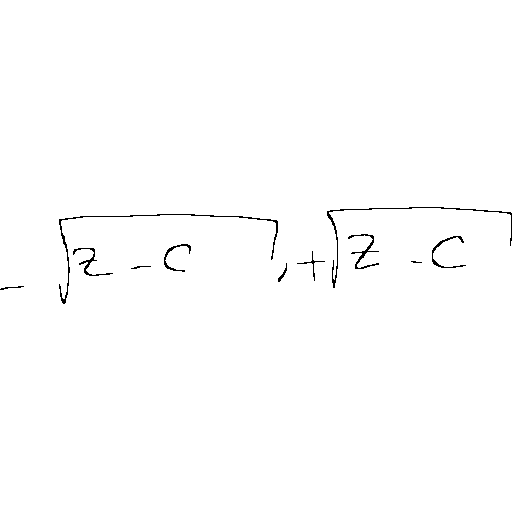 -√(z-c), +√(z-c)